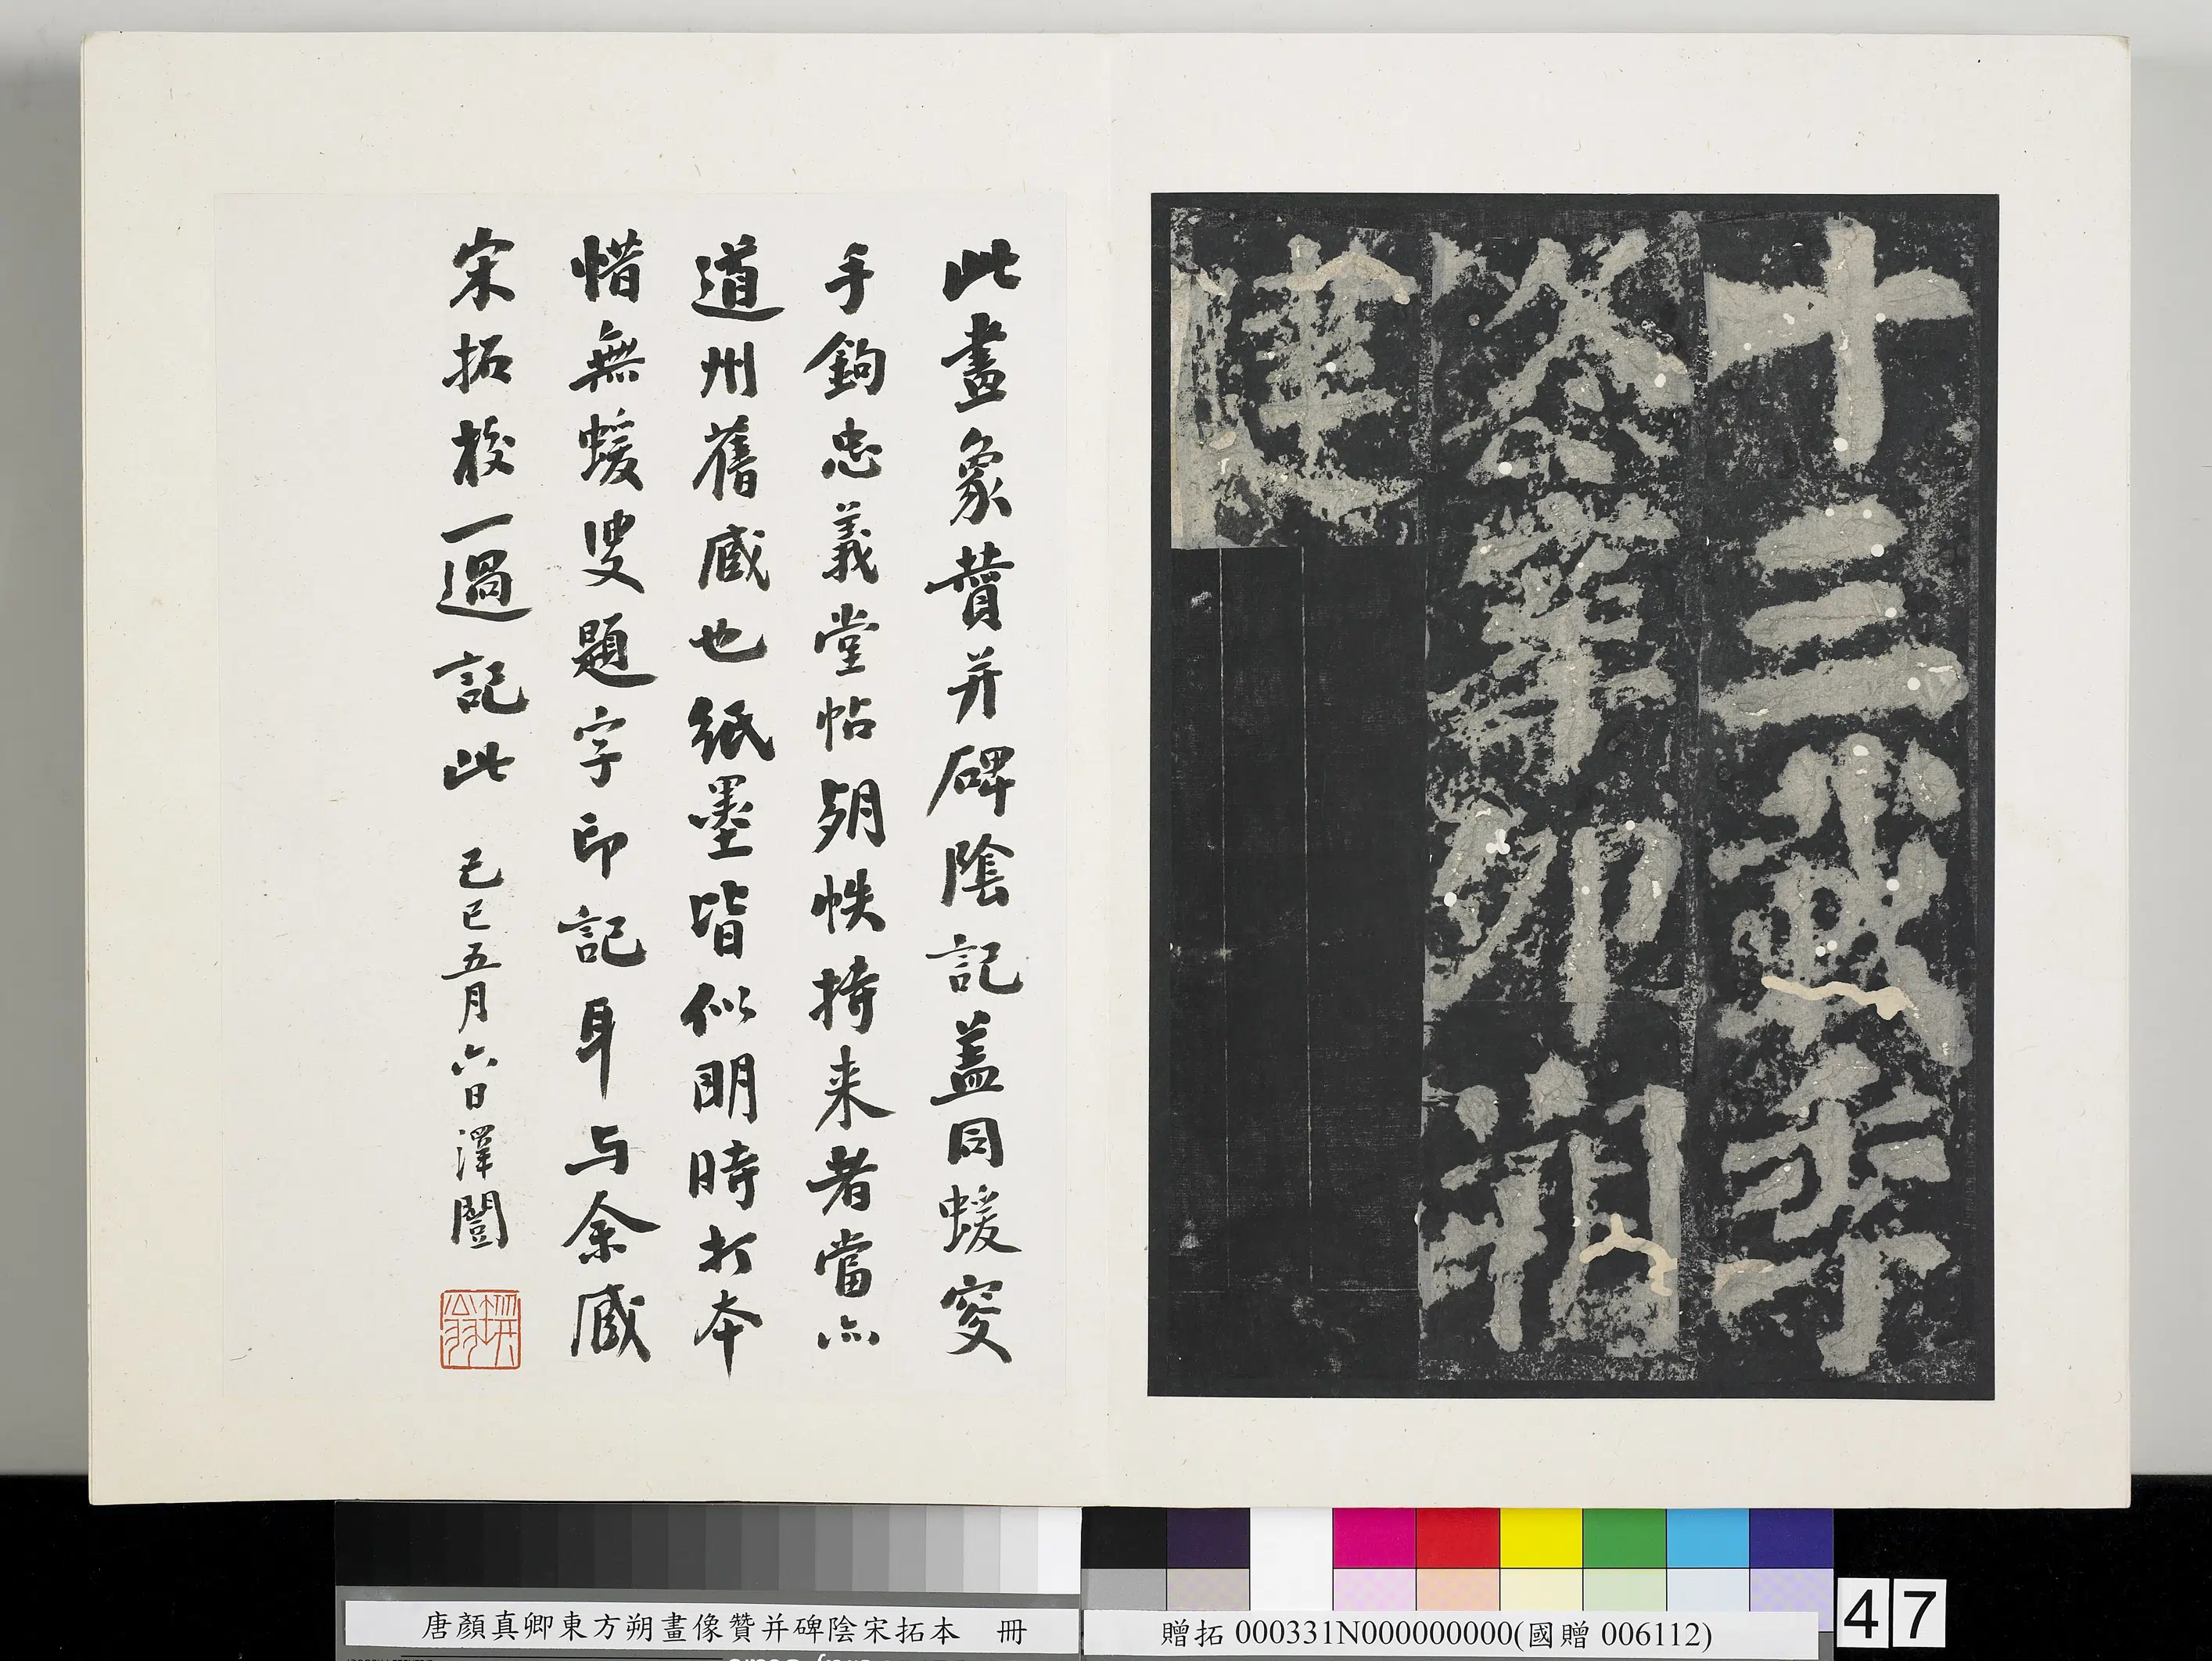 十三載季
冬辛卯朔
建
此畫象贊并碑陰記蓋同蝯叜
手鉤忠義堂帖帙掎来者當亦
道州舊藏也紙墨皆似明時打本
惜無蝯叟題字印記耳与余藏
宋拓校一過記此 己巳五月六日澤闓
瓶翁
唐顏真卿東方朔畫像贊并碑陰宋拓本 冊
贈拓 000331N000000000(國贈 006112)
47